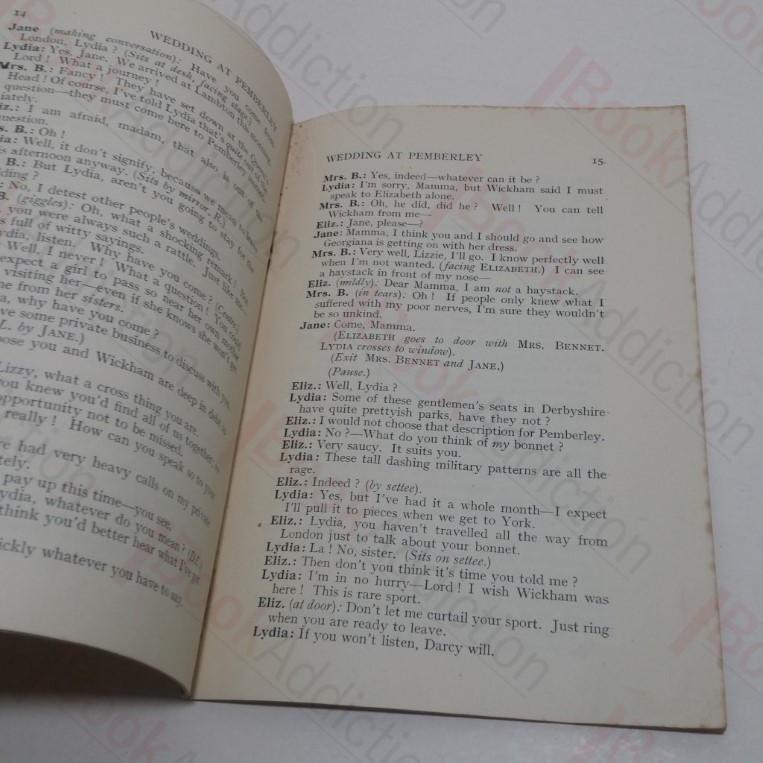 14
WEDDING AT PEMBERLEY
Jane (making conversation): Have you come from
London, Lydia ? (Sits at desk, facing stage)
Lydia: Yes, Jane. We arrived at Lambton this morning.
Lord ! What a journey !
Mrs. B.: Fancy ! They have set down at the Queen's
Head ! Of course, I've told Lydia that's quite out of the
question—they must come here to Pemberley immed-
iately.
Eliz.: I am afraid, madam, that also is out of the
question.
Mrs. B.: Oh !
Lydia: Well, it don't signify, because we mean to
this afternoon anyway. (Sits by mirror R.)
B.: But Lydia, aren't you going to stay for the
wedding ?
: No, I detest other people's weddings.
B. (giggles): Oh, what a shocking remark ! But
you were always such a rattle. Just like me—
full of witty sayings.
Lydia, listen. Why have you come ?
Well, I never ! What a question ! (Crosses
expect a girl to pass so near her own mother
visiting her—even if she knows she won't get
me from her sisters.
a, why have you come ?
ve some private business to discuss with you.
L. by JANE.)
pose you and Wickham are deep in debt
Lizzy, what a cross thing you are.
you knew you'd find all of us together,
opportunity not to be missed.
really ! How can you speak so to your
've had very heavy calls on my private
ately.
pay up this time—you see.
Lydia, whatever do you mean ? (D.C.)
think you'd better hear what I've got
ickly whatever you have to say.
WEDDING AT PEMBERLEY 15
Mrs. B.: Yes, indeed—whatever can it be ?
Lydia: I'm sorry, Mamma, but Wickham said I must
speak to Elizabeth alone.
Mrs. B.: Oh, he did, did he ? Well ! You can tell
Wickham from me—
Eliz.: Jane, please—?
Jane: Mamma, I think you and I should go and see how
Georgiana is getting on with her dress.
Mrs. B.: Very well, Lizzie, I'll go. I know perfectly well
when I'm not wanted. (facing ELIZABETH.) I can see
a haystack in front of my nose—
Eliz. (mildly): Dear Mamma, I am not a haystack.
Mrs. B. (in tears): Oh ! If people only knew what I
suffered with my poor nerves, I'm sure they wouldn't
be so unkind.
Jane: Come, Mamma.
(ELIZABETH goes to door with MRS. BENNET.
LYDIA crosses to window).
(Exit MRS. BENNET and JANE.)
(Pause.)
Eliz.: Well, Lydia ?
Lydia: Some of these gentlemen's seats in Derbyshire
have quite prettyish parks, have they not ?
Eliz.: I would not choose that description for Pemberley.
Lydia: No ?—What do you think of my bonnet ?
Eliz.: Very saucy. It suits you.
Lydia: These tall dashing military patterns are all the
rage.
Eliz.: Indeed ? (by settee).
Lydia: Yes, but I've had it a whole month—I expect
I'll pull it to pieces when we get to York.
Eliz.: Lydia, you haven't travelled all the way from
London just to talk about your bonnet.
Lydia: La ! No, sister. (Sits on settee.)
Eliz.: Then don't you think it's time you told me ?
Lydia: I'm in no hurry—Lord ! I wish Wickham was
here ! This is rare sport.
Eliz. (at door): Don't let me curtail your sport. Just ring
when you are ready to leave.
Lydia: If you won't listen, Darcy will.